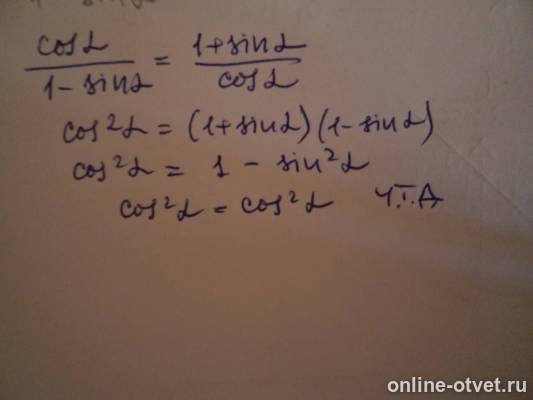 cosα/(1-sinα) = (1+sinα)/cosα
cos²α = (1+sinα)(1-sinα)
cos²α = 1 - sin²α
cos²α = cos²α ч.т.д
online-otvet.ru